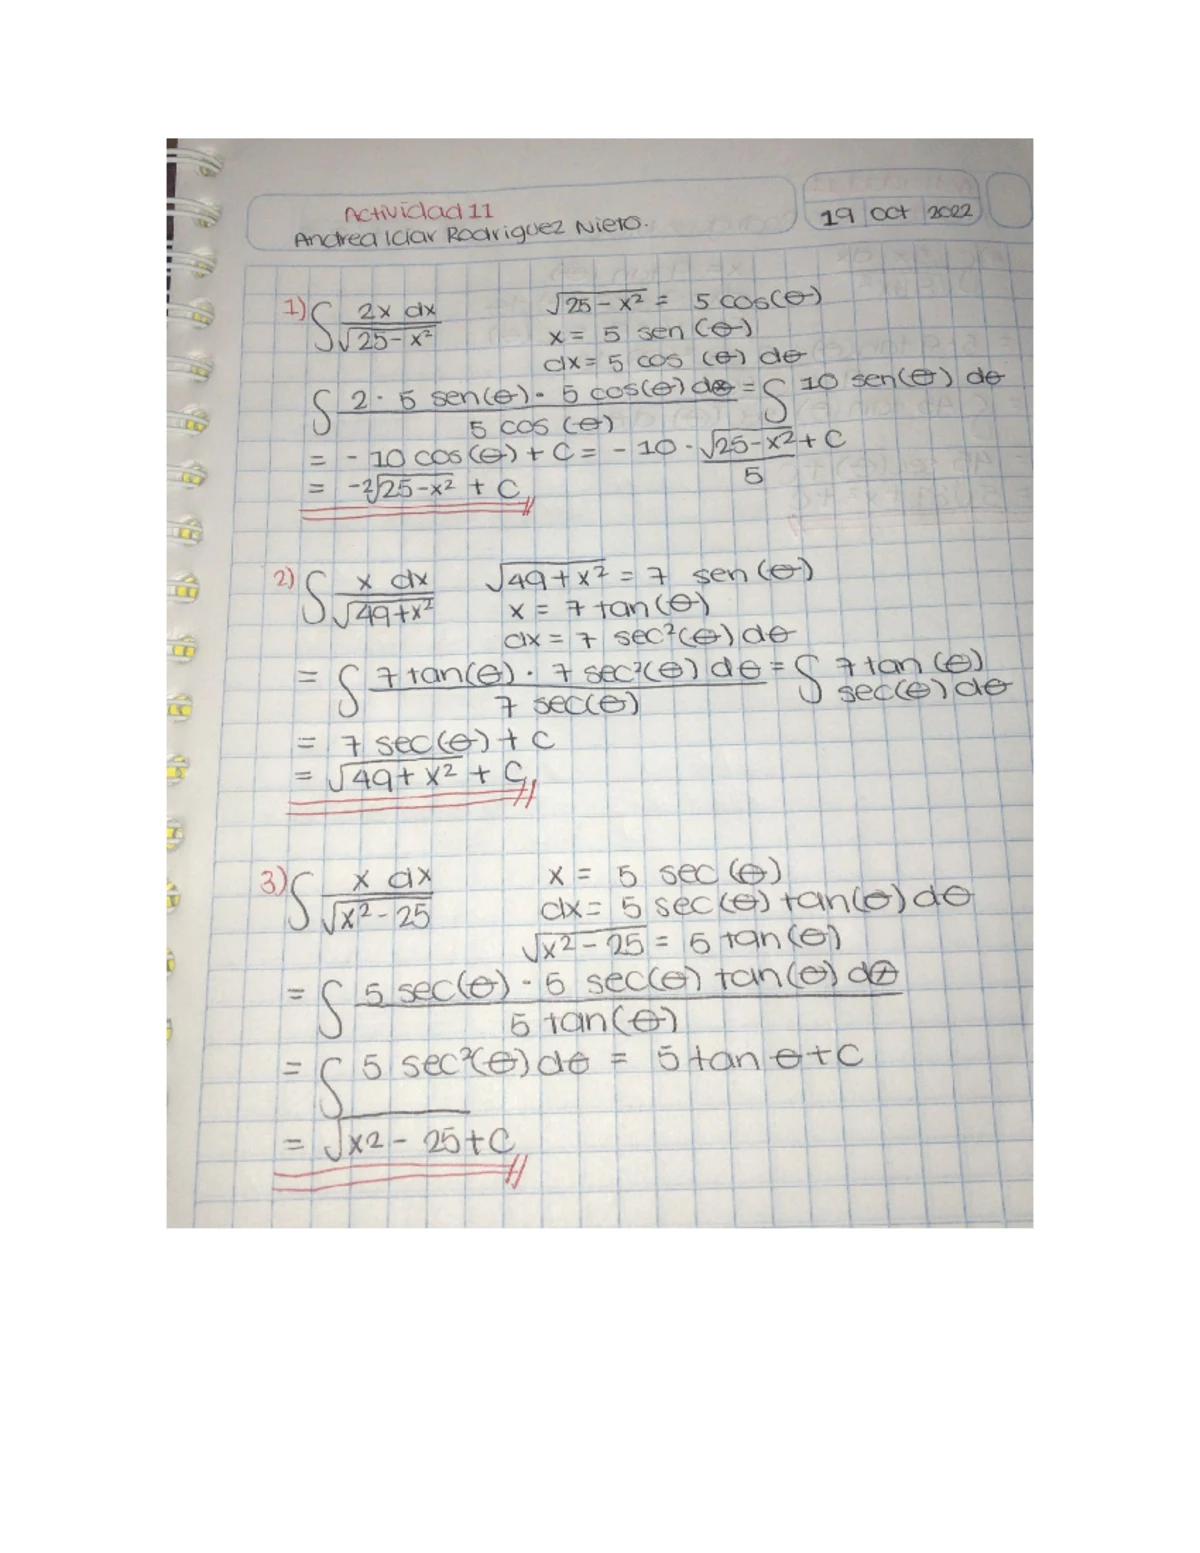 Actividad 11
Andrea Iciar Rodriguez Nieto.
19 Oct 2022
1) ∫ 2x dx / √25-x²
√25-x² = 5 cos(θ)
x = 5 sen (θ)
dx = 5 cos (θ) dθ
∫ 2 · 5 sen(θ) · 5 cos(θ) dθ / 5 cos (θ) = ∫ 10 sen(θ) dθ
= -10 cos(θ) + C = -10 · √25-x² / 5 + C
= -2√25-x² + C
2) ∫ x dx / √49+x²
√49+x² = 7 sen(θ)
x = 7 tan(θ)
dx = 7 sec²(θ) dθ
= ∫ 7 tan(θ) · 7 sec²(θ) dθ / 7 sec(θ) = ∫ 7 tan (θ)
sec(θ) dθ
= 7 sec(θ) + C
= √49+x² + C
3) ∫ x dx / √x²-25
x = 5 sec(θ)
dx = 5 sec(θ) tan(θ) dθ
√x²-25 = 5 tan(θ)
= ∫ 5 sec(θ) · 5 sec(θ) tan(θ) dθ / 5 tan(θ)
= ∫ 5 sec²(θ) dθ = 5 tan θ + C
= √x2 - 25 + C